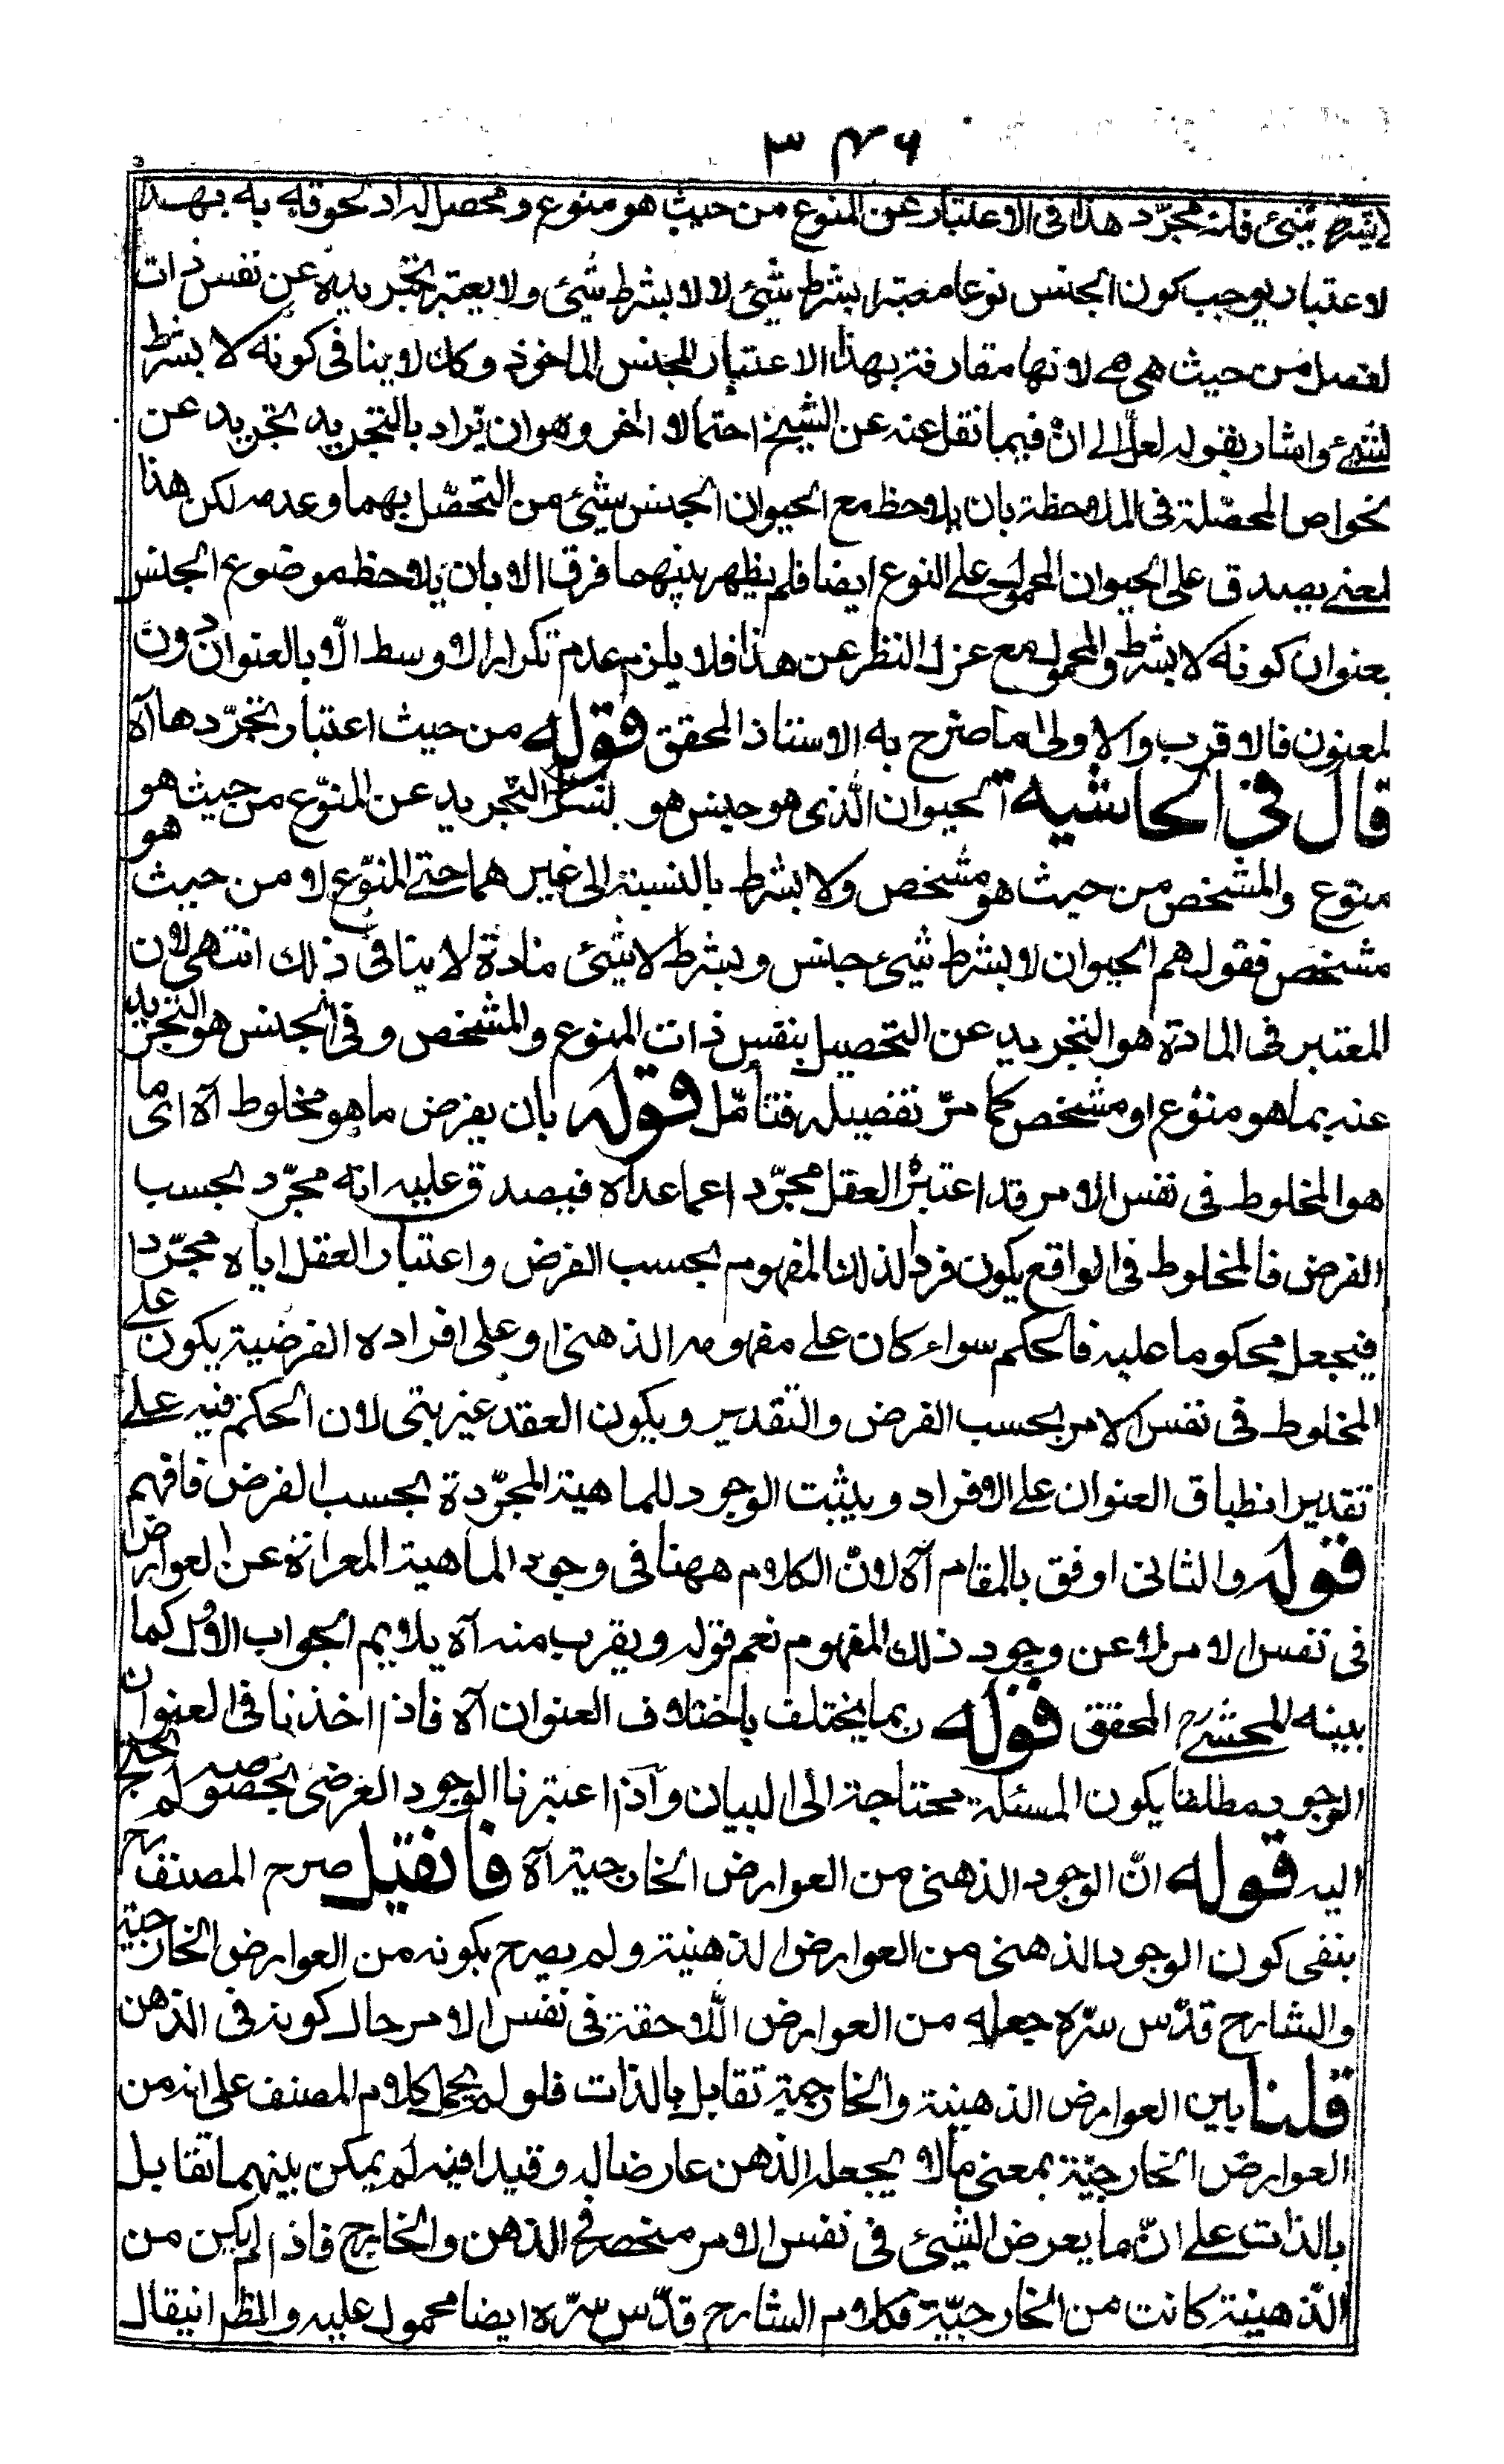 ۳۴۶
لا بشرط شئ فانه مجرّد هذا فى الاعتبار عن المنوع من حيث هو منوع ومحصل له اذ لحوقه به بهذا
لاعتبار يوجب كون الجنس نوعا معتبرا بشرط شئ لا لا بشرط شئ ولا يعتبر تجريده عن نفس ذات
لفصل من حيث هى هى لانها مقارنة بهذا الاعتبار للجنس الماخوذ وكل لا ينافى كونه لا بشرط
لشئ واشار بقوله لعل الى ان فيما نقل عنه عن الشيخ احتمالا اخر وهو ان يراد بالتجريد تجريد عن
لخواص المحصّلة فى الملاحظة بان يلاحظ مع الحيوان الجنس بشئ من التحصّل بهما وعدمه لكن هذا
لمعنى يصدق على الحيوان المحمول على النوع ايضا فلم يظهر بينهما فرق الا بان يلاحظ موضوع الجنس
بعنوان كونه لا بشرط والمحمول مع عزل النظر عن هذا فلا يلزم عدم تكرار الاوسط الّا بالعنوان دون
لمعنون فالاقرب والاولى ما صرّح به الاستاذ المحقق قوله من حيث اعتبار تجرّدها آه
قال فى الحاشية الحيوان الذى هو جنس هو بشرط التجريد عن المنوّع من حيث هو
منوع والمشخص من حيث هو مشخص ولا بشرط بالنسبة الى غيرهما حتى المنوّع لا من حيث هو
مشخص فقولهم الحيوان لا بشرط شئ جنس وبشرط لا شئ مادة لا ينافى ذلك انتهى لان
المعتبر فى المادة هو التجريد عن التحصيل بنفس ذات المنوع والمشخص وفى الجنس هو التجريد
عنه بما هو منوّع او مشخص كما مرّ تفصيله فتأمّل قوله بان يفرض ما هو مخلوط آه اى ما
هو المخلوط فى نفس الامر قد اعتبره العقل مجرّدا عما عداه فيصدق عليه انه مجرّد بحسب
الفرض فالمخلوط فى الواقع يكون فردا لذلك المفهوم بحسب الفرض واعتبار العقل اياه مجرّدا
فيجعل محكوما عليه فالحكم سواء كان على مفهومه الذهنى او على افراده الفرضية يكون على
المخلوط فى نفس الامر بحسب الفرض والتقدير ويكون العقد غير بتى لان الحكم فيه على
تقدير انطباق العنوان على الافراد ويثبت الوجود للماهية المجرّدة بحسب الفرض فافهم
قوله والثانى اوفق بالمقام آه لانّ الكلام ههنا فى وجود الماهية المعراة عن العوارض
فى نفس الامر لا عن وجود ذلك المفهوم نعم قوله ويقرب منه آه يلايم الجواب الاول كما
بينه المحشى المحقق قوله ربما يختلف باختلاف العنوان آه فاذا اخذنا فى العنوان
الوجود مطلقا يكون المسئلة محتاجة الى البيان واذا اعتبرنا الوجود الفرضى بخصوصه لم يحتج
اليه قوله انّ الوجود الذهنى من العوارض الخارجية آه فان قيل صرح المصنف رح
بنفى كون الوجود الذهنى من العوارض الذهنية ولم يصرح بكونه من العوارض الخارجية
والشارح قدّس سرّه جعله من العوارض اللاحقة فى نفس الامر حال كونه فى الذهن
قلنا بين العوارض الذهنية والخارجية تقابل بالذات فلو لم يحمل كلام المصنف على انه من
العوارض الخارجيّة بمعنى ما لا يجعله الذهن عارضا له وقيدا فيه لم يمكن بينهما تقابل
بالذات على انّ ما يعرض الشئ فى نفس الامر منحصر فى الذهن والخارج فاذا لم يكن من
الذهنية كانت من الخارجيّة فكلام الشارح قدّس سرّه ايضا محمول عليه والظر ان يقال